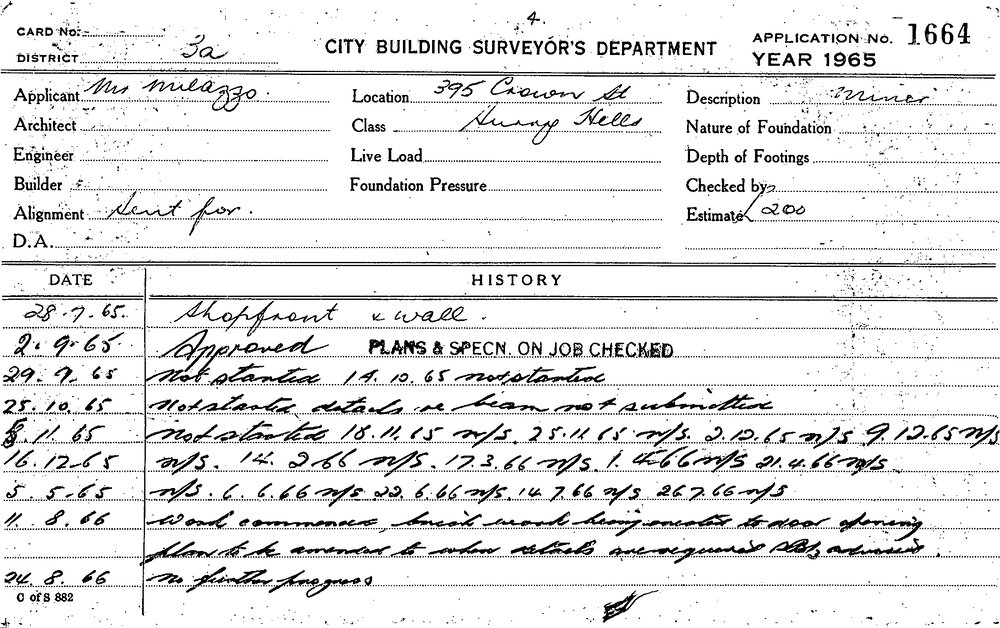 4.
CARD No.
DISTRICT 3a
CITY BUILDING SURVEYOR'S DEPARTMENT
APPLICATION No. 1664
YEAR 1965
Applicant Mr Milazzo.
Location 395 Crown St
Description Minor
Architect
Class Surry Hills
Nature of Foundation
Engineer
Live Load
Depth of Footings
Builder
Foundation Pressure
Checked by
Alignment Sent for.
Estimate £200
D.A.
DATE HISTORY
28.7.65. Shopfront & wall.
2.9.65 Approved PLANS & SPECN. ON JOB CHECKED
29.9.65 Not started 14.10.65 not started
25.10.65 Not started details re beam not submitted
8.11.65 Not started 18.11.65 n/s. 25.11.65 n/s. 2.12.65 n/s 9.12.65 n/s
16.12.65 n/s. 14.2.66 n/s. 17.3.66 n/s. 1.4.66 n/s 21.4.66 n/s
5.5.65 n/s. 6.6.66 n/s. 22.6.66 n/s. 14.7.66 n/s 26.7.66 n/s
11.8.66 Work commenced, brick work being erected to door opening
plan to be amended to when details are required advised.
24.8.66 No further progress
C of S 882